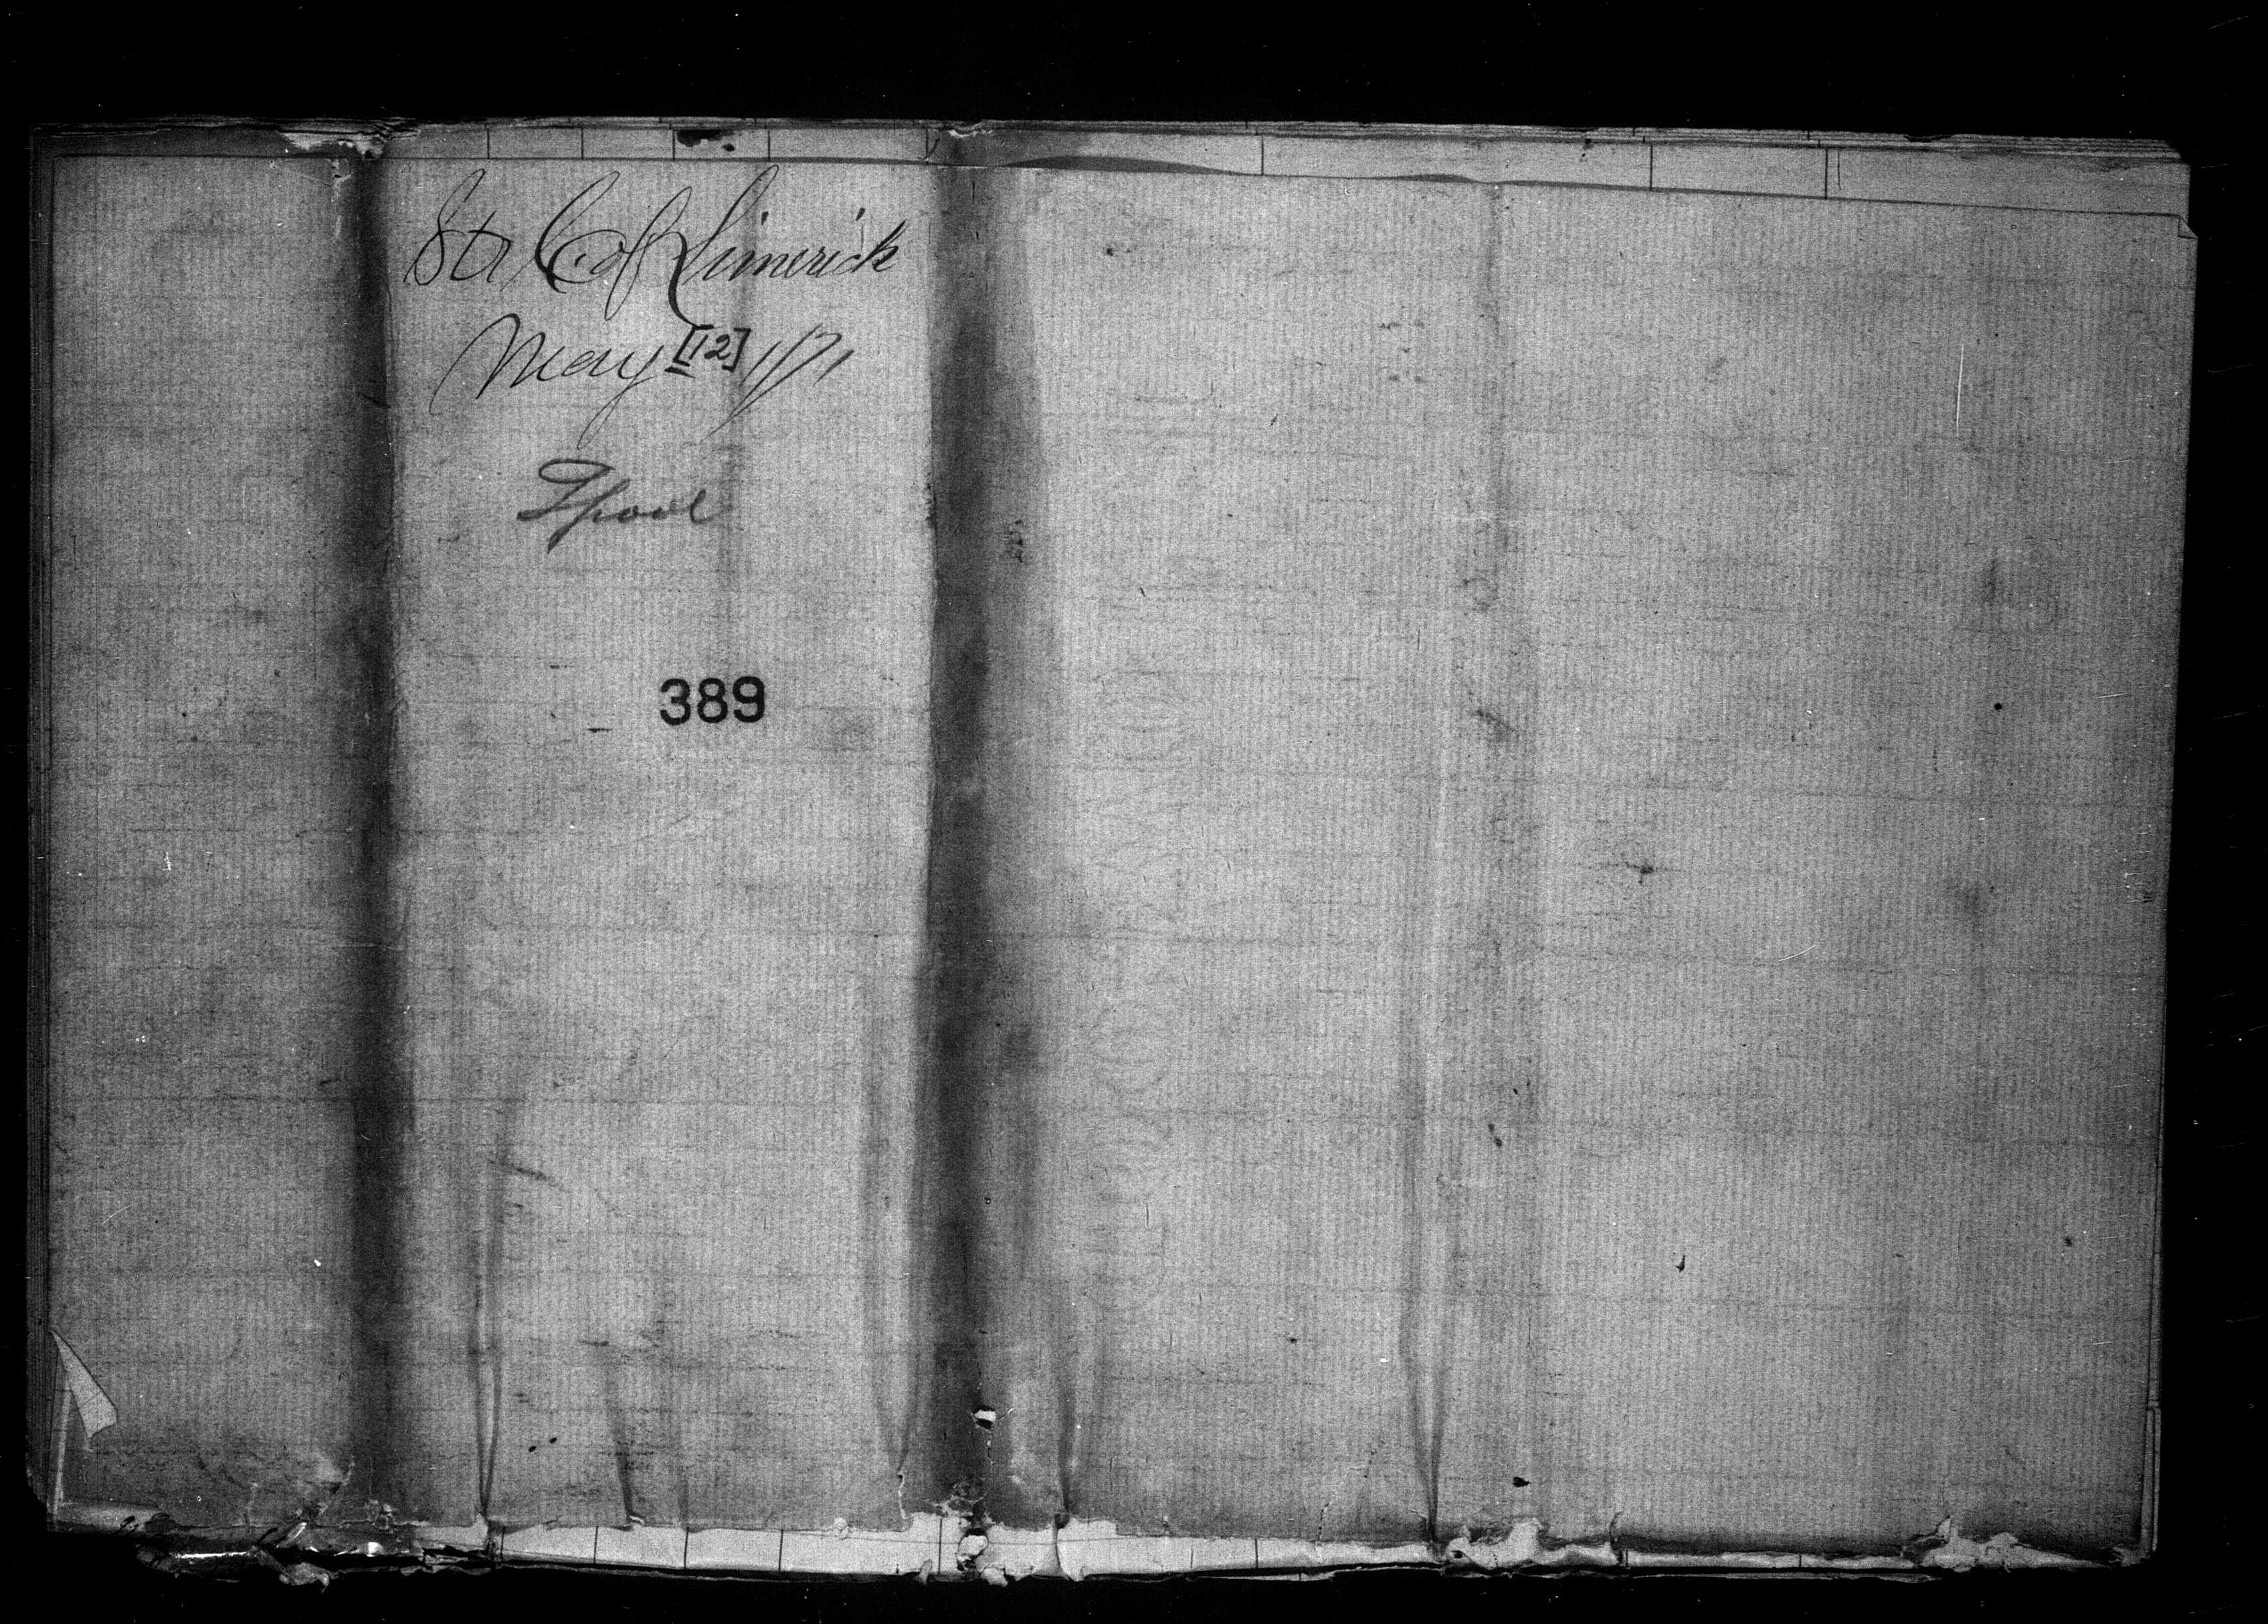 Str C. of Limerick
May [12] 1/71
Lpool
389